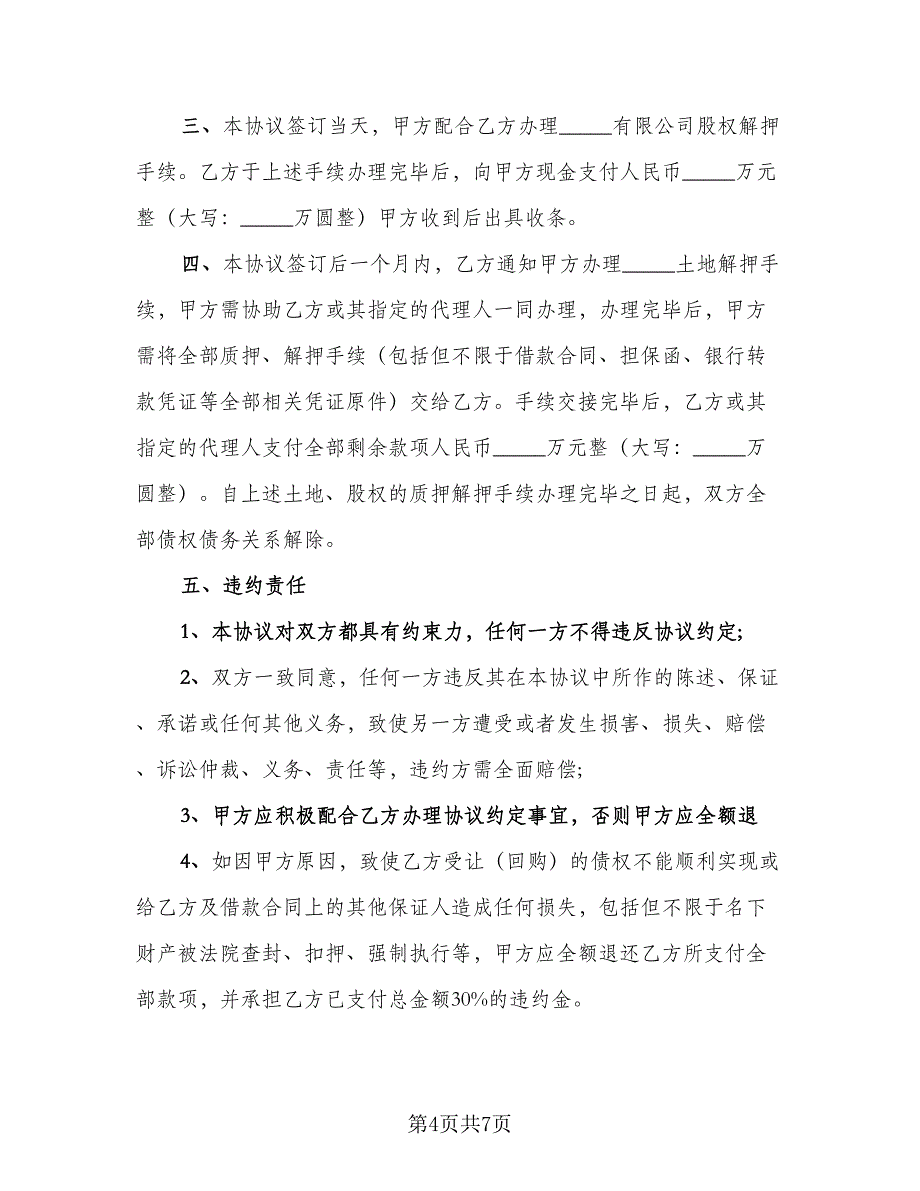 三、本协议签订当天，甲方配合乙方办理_____有限公司股权解押
手续。乙方于上述手续办理完毕后，向甲方现金支付人民币_____万元
整（大写：_____万圆整）甲方收到后出具收条。
四、本协议签订后一个月内，乙方通知甲方办理_____土地解押手
续，甲方需协助乙方或其指定的代理人一同办理，办理完毕后，甲方
需将全部质押、解押手续（包括但不限于借款合同、担保函、银行转
款凭证等全部相关凭证原件）交给乙方。手续交接完毕后，乙方或其
指定的代理人支付全部剩余款项人民币_____万元整（大写：_____万
圆整）。自上述土地、股权的质押解押手续办理完毕之日起，双方全
部债权债务关系解除。
五、违约责任
1、本协议对双方都具有约束力，任何一方不得违反协议约定;
2、双方一致同意，任何一方违反其在本协议中所作的陈述、保证
、承诺或任何其他义务，致使另一方遭受或者发生损害、损失、赔偿
、诉讼仲裁、义务、责任等，违约方需全面赔偿;
3、甲方应积极配合乙方办理协议约定事宜，否则甲方应全额退
4、如因甲方原因，致使乙方受让（回购）的债权不能顺利实现或
给乙方及借款合同上的其他保证人造成任何损失，包括但不限于名下
财产被法院查封、扣押、强制执行等，甲方应全额退还乙方所支付全
部款项，并承担乙方已支付总金额30%的违约金。
第4页共7页